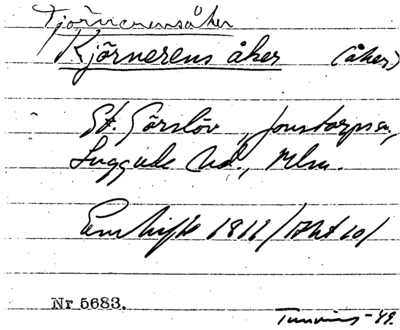 Tjörnerensåker
Kjörnerens åker (åker)
St. Görslöv, Jonstorps sn,
Luggude hd., Mlm.
Enskifte 1811 /Akt 10/
Nr 5683.
-49.